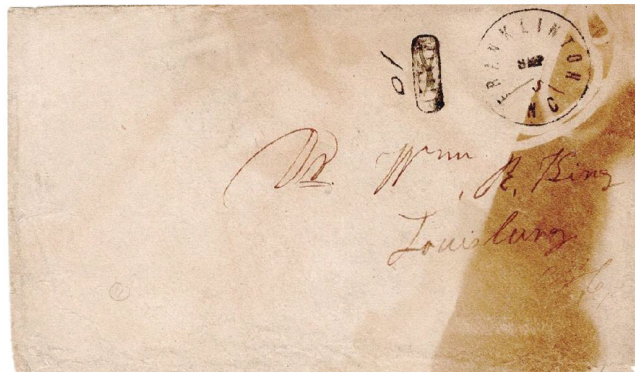 FRANKLINTON N C
SEP
5
10
PAID
Dr. Wm. R. King
Louisburg
N.C.